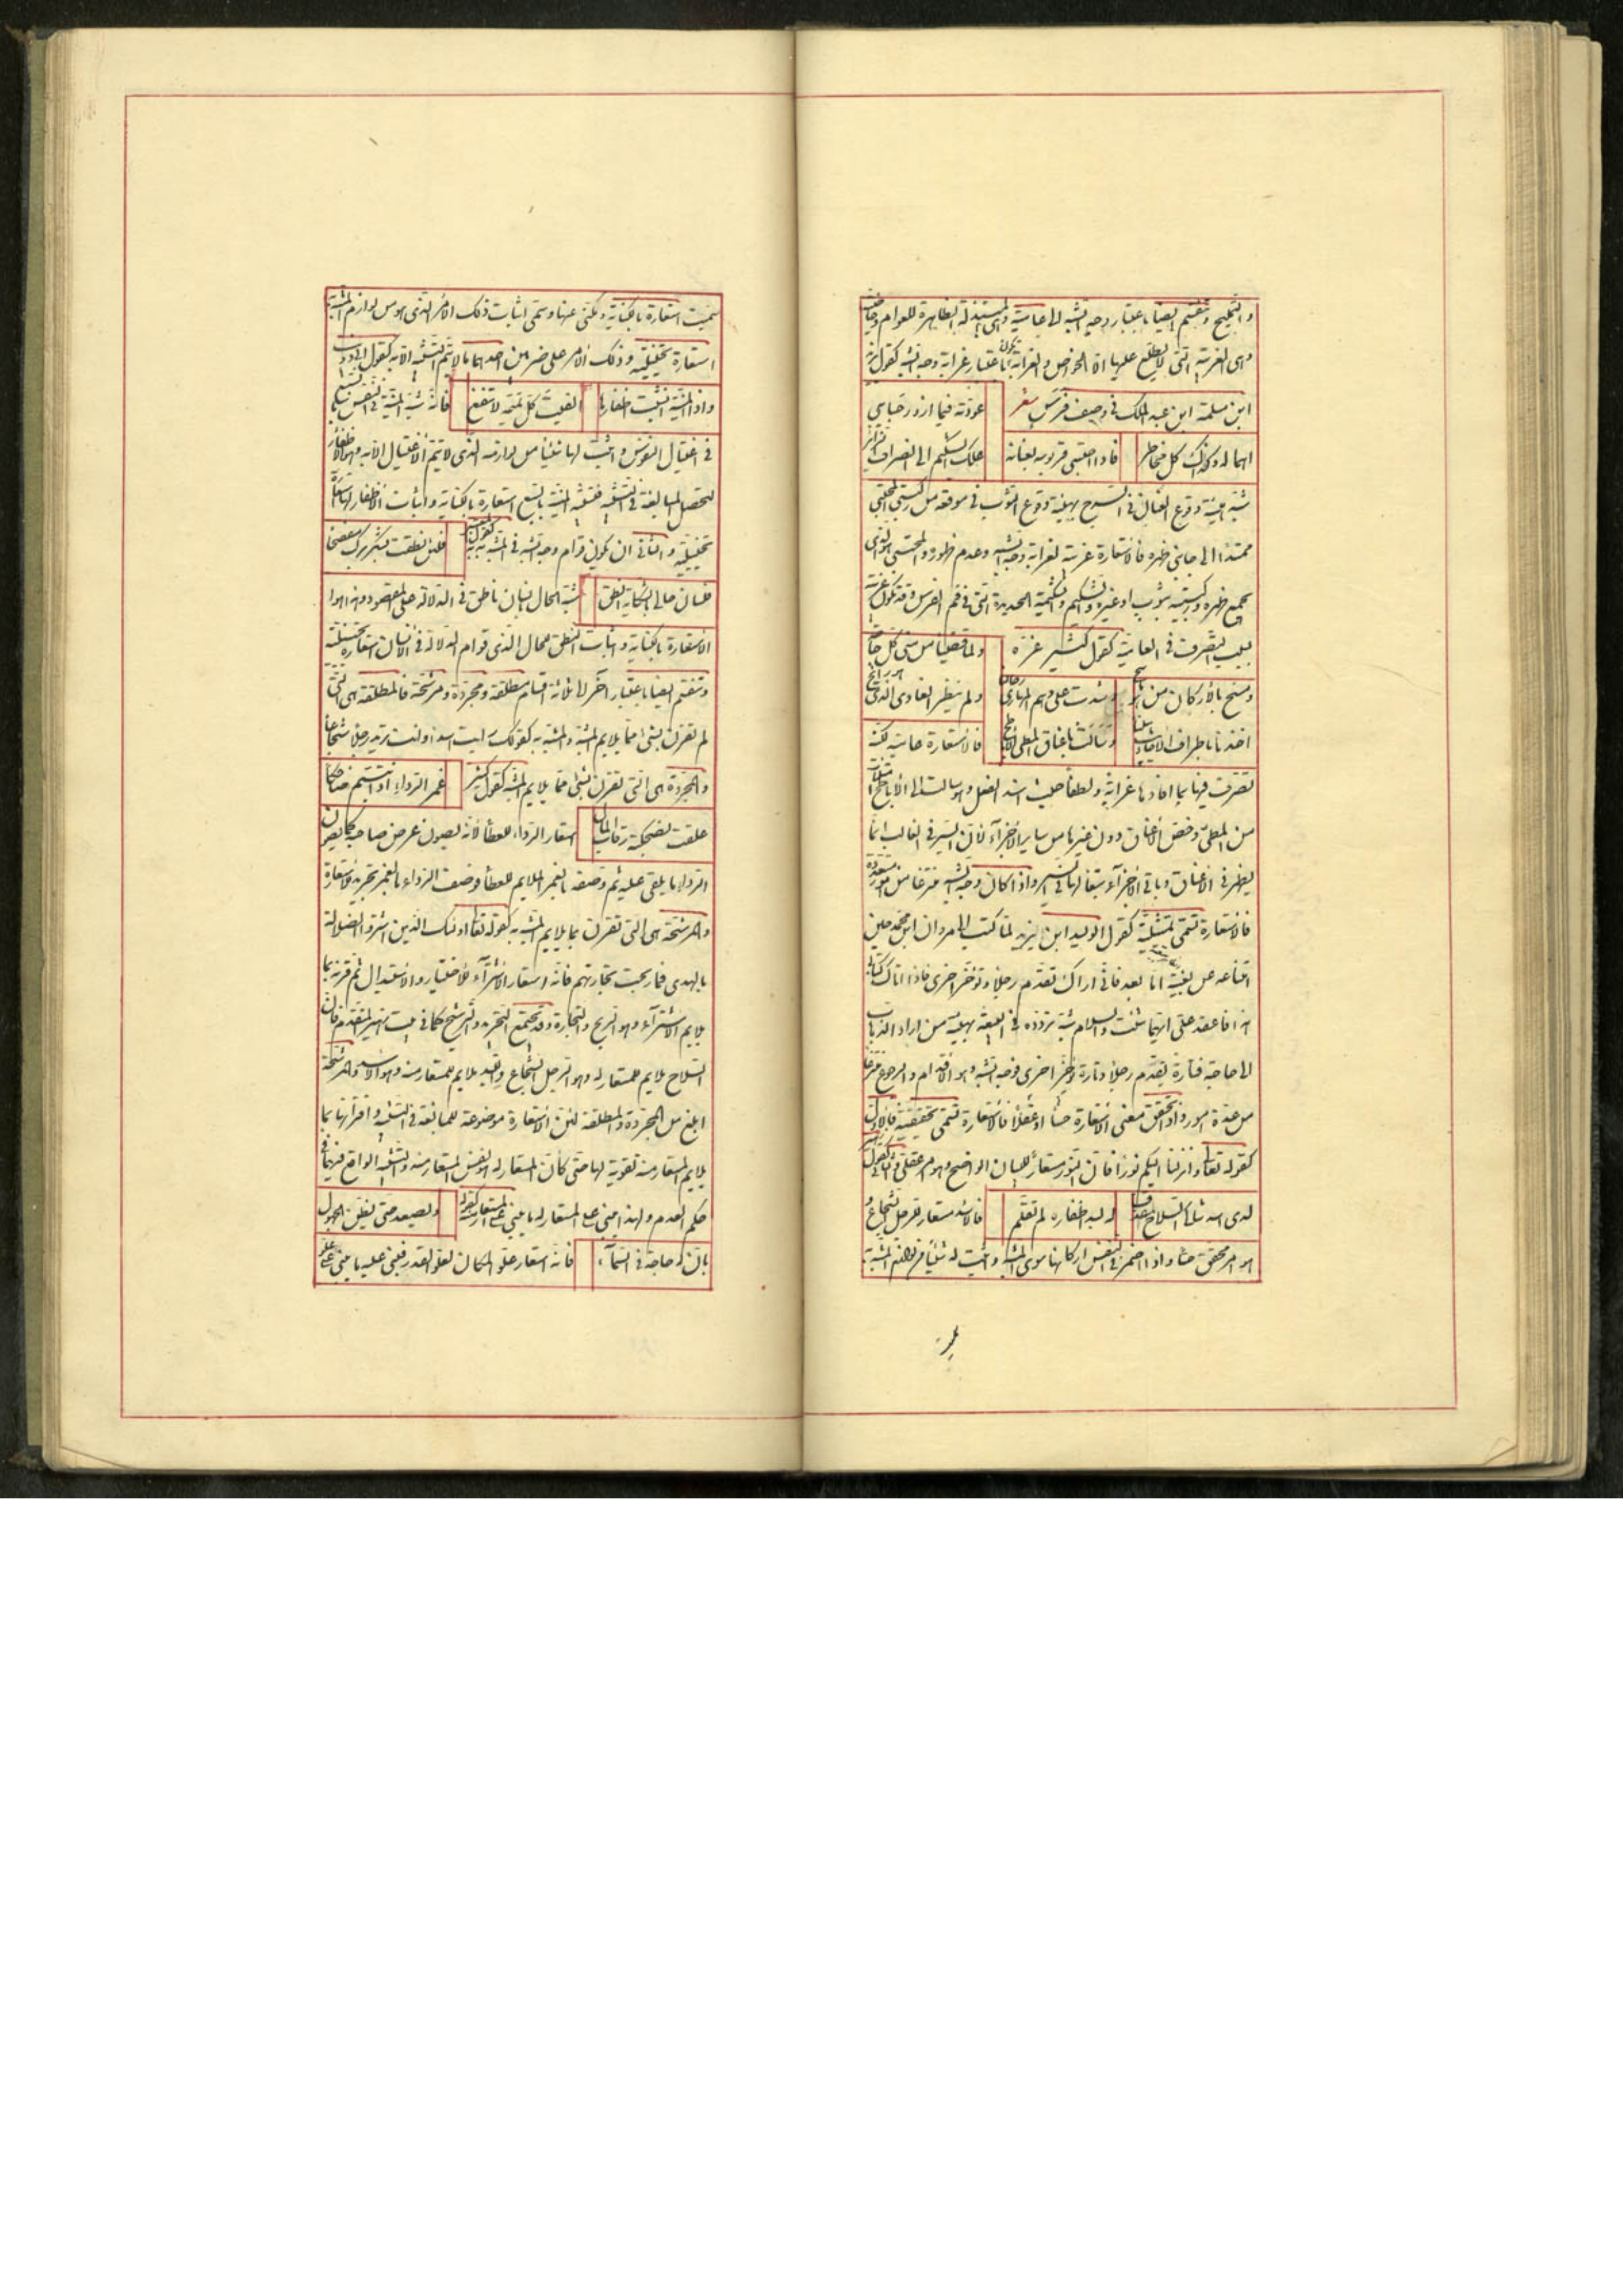 والتمليح وتنقسم ايضا باعتبار وجه الشبه الى عامية وهى المبتذلة الظاهرة للعوام وخاصية
وهى الغريبة التى لا يطلع عليها الا الخواص والغرابة تكون باعتبار غرابة وجه الشبه كقول يزيد
ابن مسلمة ابن عبد الملك فى وصف فرس شعر عودته فيما ازور حبايبى
اهماله وكذاك كل مخاطر فاذا احتبى قربوسه بعنانه علك الشكيم الى انصراف الزائر
شبه هيئة وقوع العنان فى السرج بهيئة وقوع الثوب فى موقعه من ركبتى المحتبى
ممتدا الى جانبى ظهره فالاستعارة غريبة لغرابة وجه الشبه وعدم ظهوره والمحتبى هو الذى
يجمع ظهره وركبتيه بثوب او غيره والشكيم والشكيمة الحديدة التى فى فم الفرس وقد تكون غريبة
بسبب التصرف فى العامية كقول كثير عزة ولما قضينا من منى كل حاجة
ومسح بالاركان من هو ماسح وشدت على دهم المهارى رحالنا ولم ينظر الغادى الذى هو رائح
اخذنا باطراف الاحاديث بيننا وسالت باعناق المطى الاباطح فالاستعارة عامية لكنه
تصرف فيها بما افادها غرابة ولطفا حيث اسند الفعل وهو سالت الى الاباطح
من المطى وخص الاعناق دون غيرها من ساير الاجزآء لان السير فى الغالب انما
يظهر فى الاعناق وباقى الاجزآء تبعا لها فى السير واذا كان وجه الشبه منتزعا من متعددة
فالاستعارة تسمى تمثيلية كقول الوليد ابن يزيد لما كتب الى مروان ابن محمد حين
امتناعه عن بيعته اما بعد فانى اراك تقدم رجلا وتؤخر اخرى فاذا اتاك كتابى
هذا فاعتمد على ايهما شئت والسلام شبه تردده فى البيعة بهيئة من اراد الذهاب
الى حاجة فتارة يقدم رجلا وتارة يؤخر اخرى فوجه الشبه وهو الاقدام والرجوع منتزعا
من عدة امور واذا تحقق معنى الاستعارة حسا او عقلا فالاستعارة تسمى تحقيقية فالاول
كقوله تعالى وانزلنا اليكم نورا فان النور مستعار للبيان الواضح وهو امر عقلى والثانى كقول
لدى اسد شاكى السلاح مقذف له لبد اظفاره لم تقلم فالاسد مستعار للرجل الشجاع و
هو امر محقق حسا واذا اضمر فى النفس اركانها سوى المشبه واثبت له شيئا من لوازم المشبه به
سميت استعارة بالكناية ومكنى عنها وتسمى اثبات ذلك الامر الذى هو من لوازم المشبه به
استعارة تخييلية وذلك الامر على ضربين احدهما ما لا يتم التشبيه الا به كقول ابى ذويب
واذا المنية انشبت اظفارها الفيت كل تميمة لا تنفع فانه شبه المنية فى النفس بالسبع
فى اغتيال النفوس واثبت لها شيئا من لوازمه الذى لا يتم الاغتيال الا به وهو الاظفار
لتحصل المبالغة فى التشبيه فتشبيه المنية بالسبع استعارة بالكناية واثبات الاظفار لها استعارة
تخييلية والثانى ان يكون قوام وجه الشبه فى المشبه به كقول فلئن نطقت بشكر برك مفصحا
فلسان حالى بالشكاية انطق شبه الحال بانسان ناطق فى الدلالة على المقصود وهذا هو
الاستعارة بالكناية واثبات النطق للحال الذى قوام الدلالة فى الانسان استعارة تخييلية
وتنقسم ايضا باعتبار آخر الى ثلاثة اقسام مطلقة ومجردة ومرشحة فالمطلقة هى التى
لم تقترن بشئ مما يلايم المشبه والمشبه به كقولك رايت اسدا وانت تريد رجلا شجاعا
والمجردة هى التى تقترن بشئ مما يلايم المشبه كقول كثير غمر الرداء اذا تبسم ضاحكا
علقت لضحكته رقاب المال استعار الرداء للعطا لانه يصون عرض صاحبه كما يصون
الرداء ما يلقى عليه ثم وصفه بالغمر الملايم للعطا فوصف الرداء بالغمر تجريد للاستعارة
والمرشحة هى التى تقترن بما يلايم المشبه به كقوله تعالى اولئك الذين اشتروا الضلالة
بالهدى فما ربحت تجارتهم فانه استعار الاشترآء للاختيار والاستبدال ثم قرنه بما
يلايم الاشترآء وهو الربح والتجارة وقد يجتمع التجريد والترشيح كما فى بيت زهير المتقدم فان
السلاح يلايم للمستعار له وهو الرجل الشجاع واللبد يلايم للمستعار منه وهو الاسد والمرشحة
ابلغ من المجردة والمطلقة لان الاستعارة موضوعة للمبالغة فى التشبيه واقترانها بما
يلايم المستعار منه تقوية لها حتى كأن المستعار له هو نفس المستعار منه والتشبيه الواقع فيهما فى
حكم العدم ولهذا يبنى على المستعار له ما يبنى على المستعار منه كقوله ويصعد حتى يظن الجهول
بان له حاجة فى السمآء فانه استعار علو المكان لعلو القدر فبنى عليه ما يبنى على علو